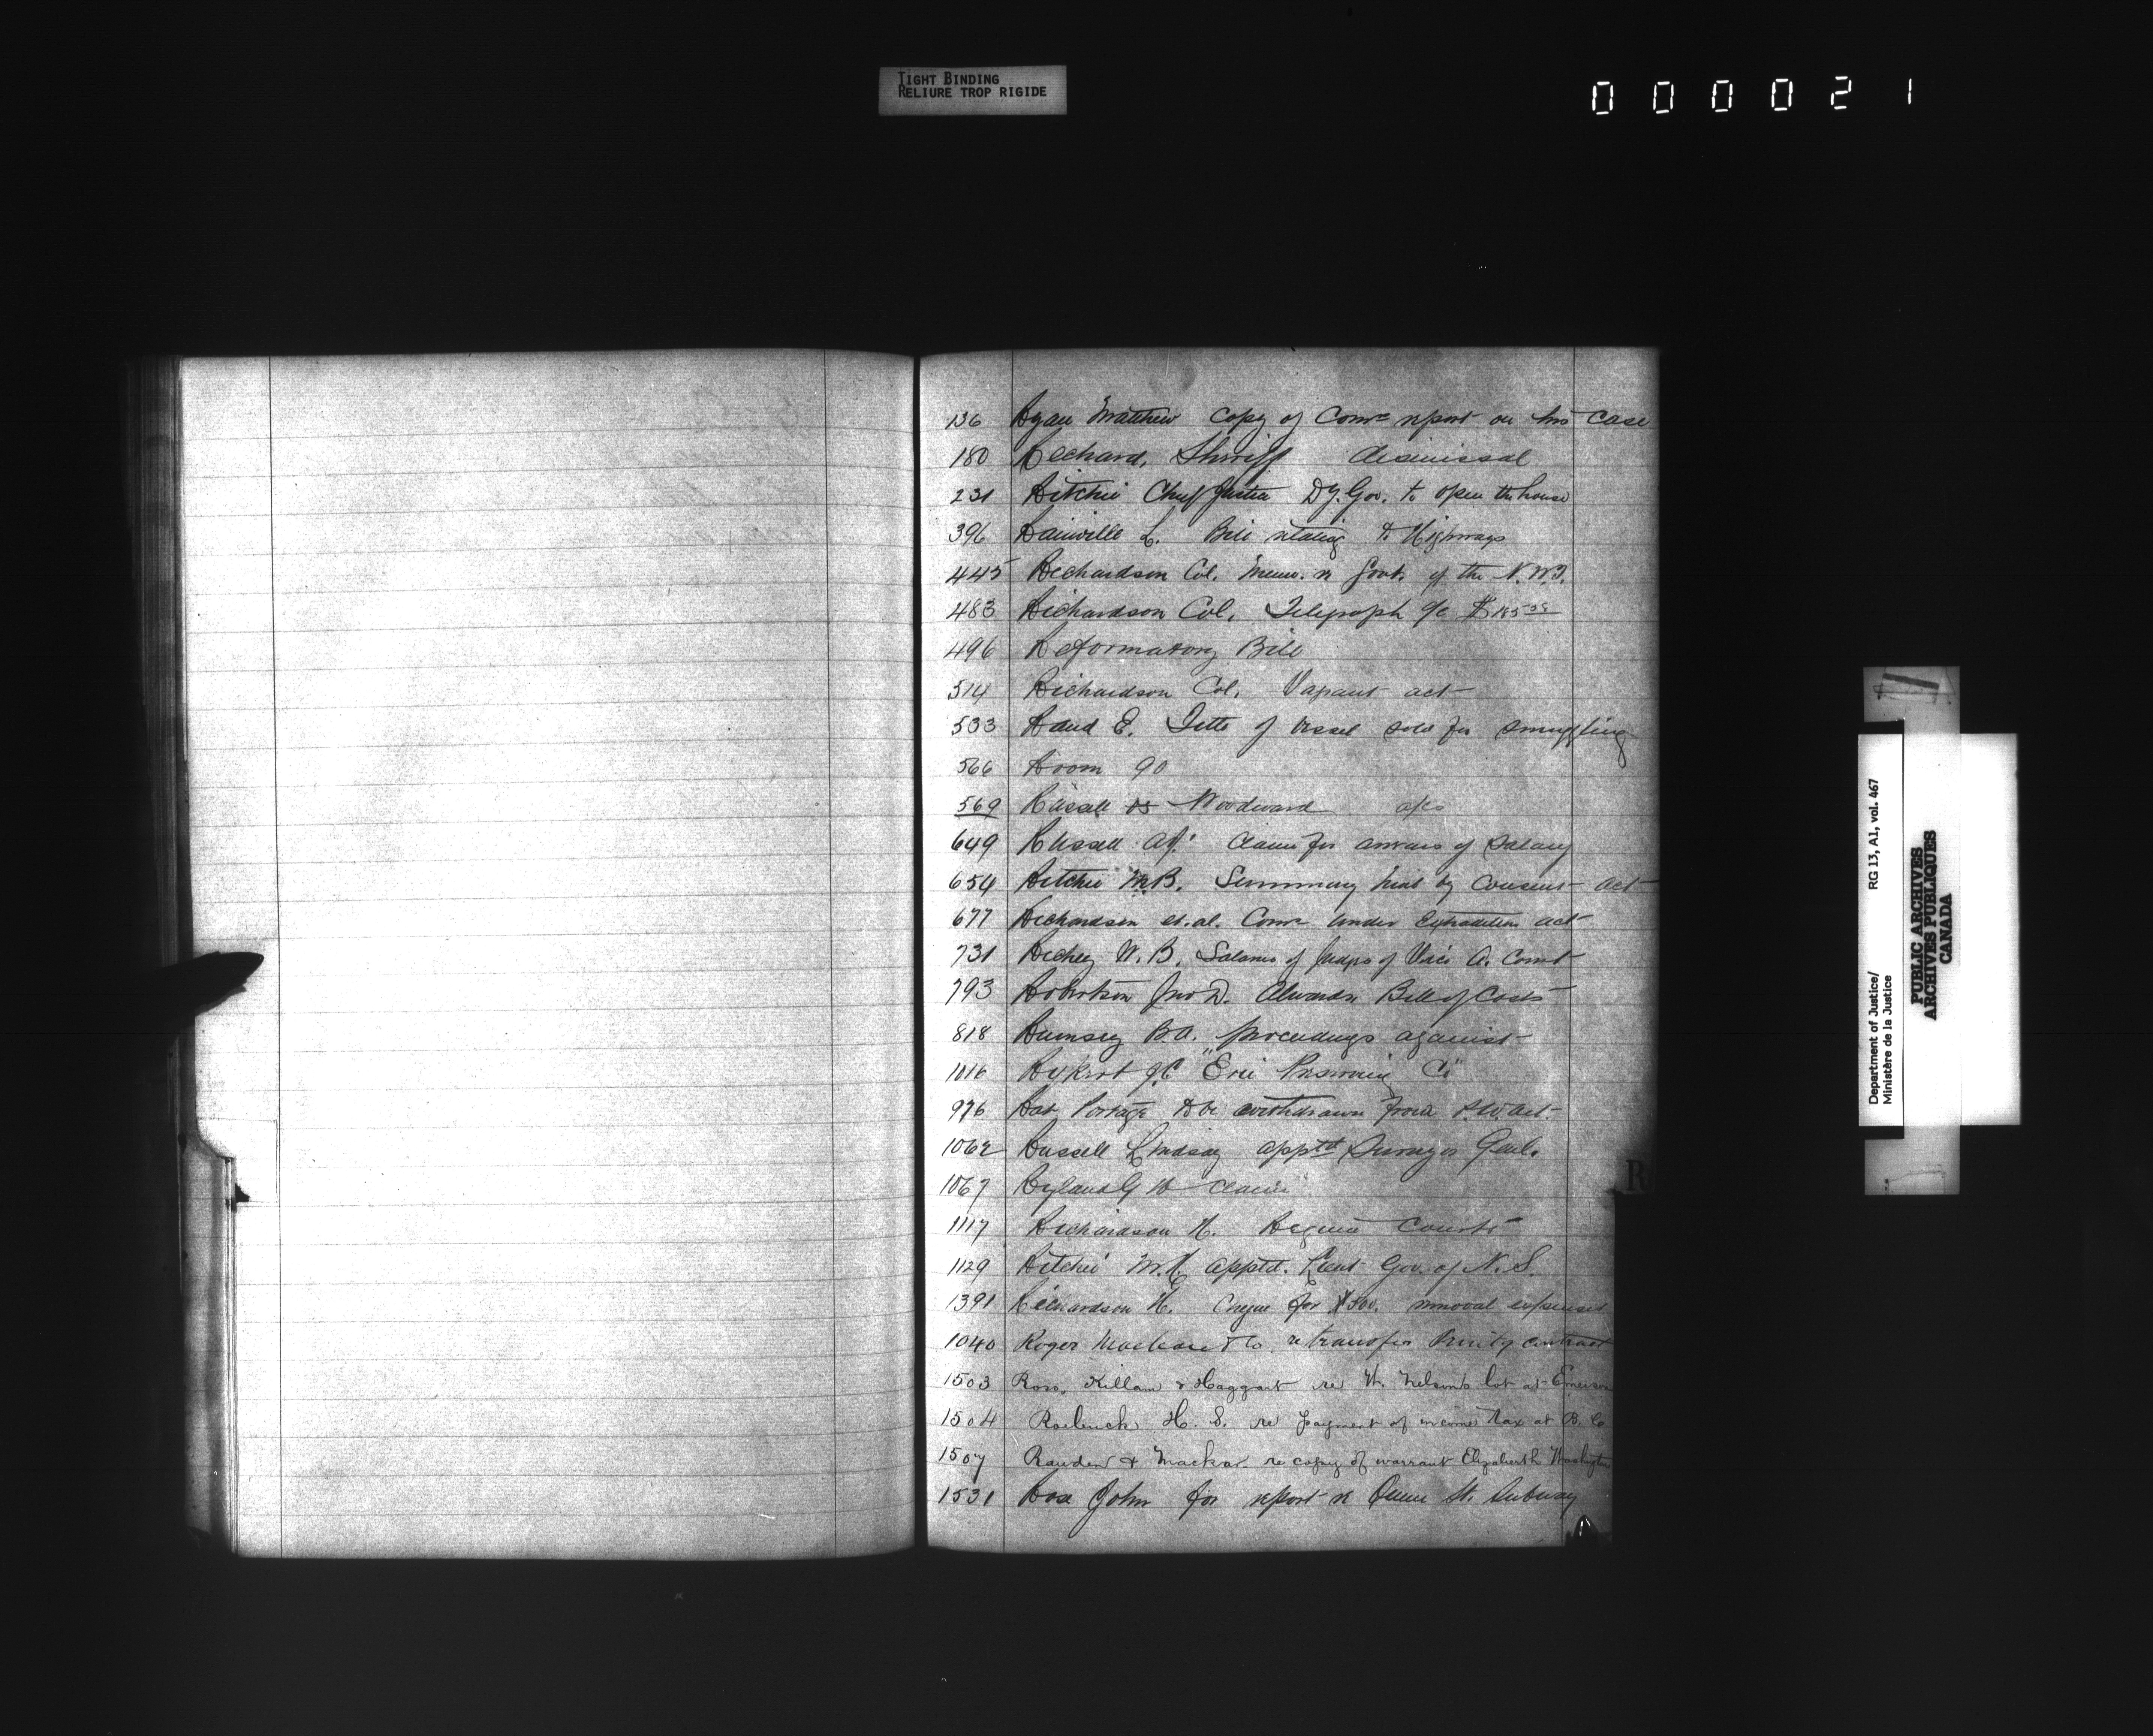 TIGHT BINDING
RELIURE TROP RIGIDE
000021
136 Ryan Matthew Copy of Comrs report on his case
180 Richard, Sheriff dismissal
231 Ritchie Chief Justice Dy. Gov. to open the house
396 Rainville L. Bill relating to Highways
445 Richardson Col. Memo. re Govt. of the N.W.T.
483 Richardson Col. Telegraph a/c
496 Reformatory Bill
514 Richardson Col. Vagrant act
533 Rand E. Title of vessel sold for smuggling
566 Room 90
569 Russell vs Woodward
649 Russell claim for arrears of salary
654 Ritchie Summary by Consent act
677 Richardson et. al. Comr under Extradition act
731 Richey W.B. Salaries of Judges of Vice A. Court
793 Robertson Jno D. Bill of Costs
818 Rumsey B.A. proceedings against
1016 Rykert J.C "Erie Co"
976 Rat Portage to be withdrawn from act
1062 Russell Lindsay apptd Surveyor Genl.
1067 Ryland G H claim
1117 Richardson H. Regina Courts
1129 Ritchie apptd. Lieut Gov. of N. S.
1391 Richardson H. Cheque for $500. removal expenses
1040 Roger Maclean & Co. re transfer Printg contract
1503 Ross, Killam & Haggart re W. Nelson's lot at Emerson
1504 Roebuck H. S. re payment of income tax at B. C
1507 & re copy of warrant Elizabeth Washington
1531 Ross John for report re Queen St. Subway
R
Department of Justice/ RG 13, A1, vol. 467
Ministère de la Justice
PUBLIC ARCHIVES
ARCHIVES PUBLIQUES
CANADA